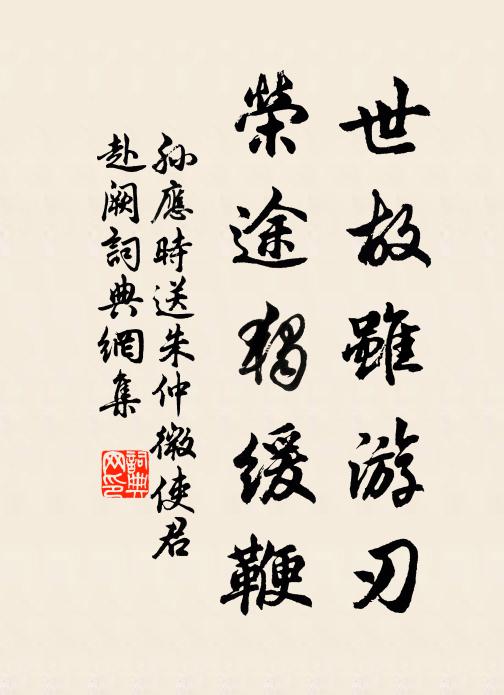 世故雖游刃
榮途獨緩鞭
孫應時送朱仲微使君
赴闕詞典網集
詞典
网印